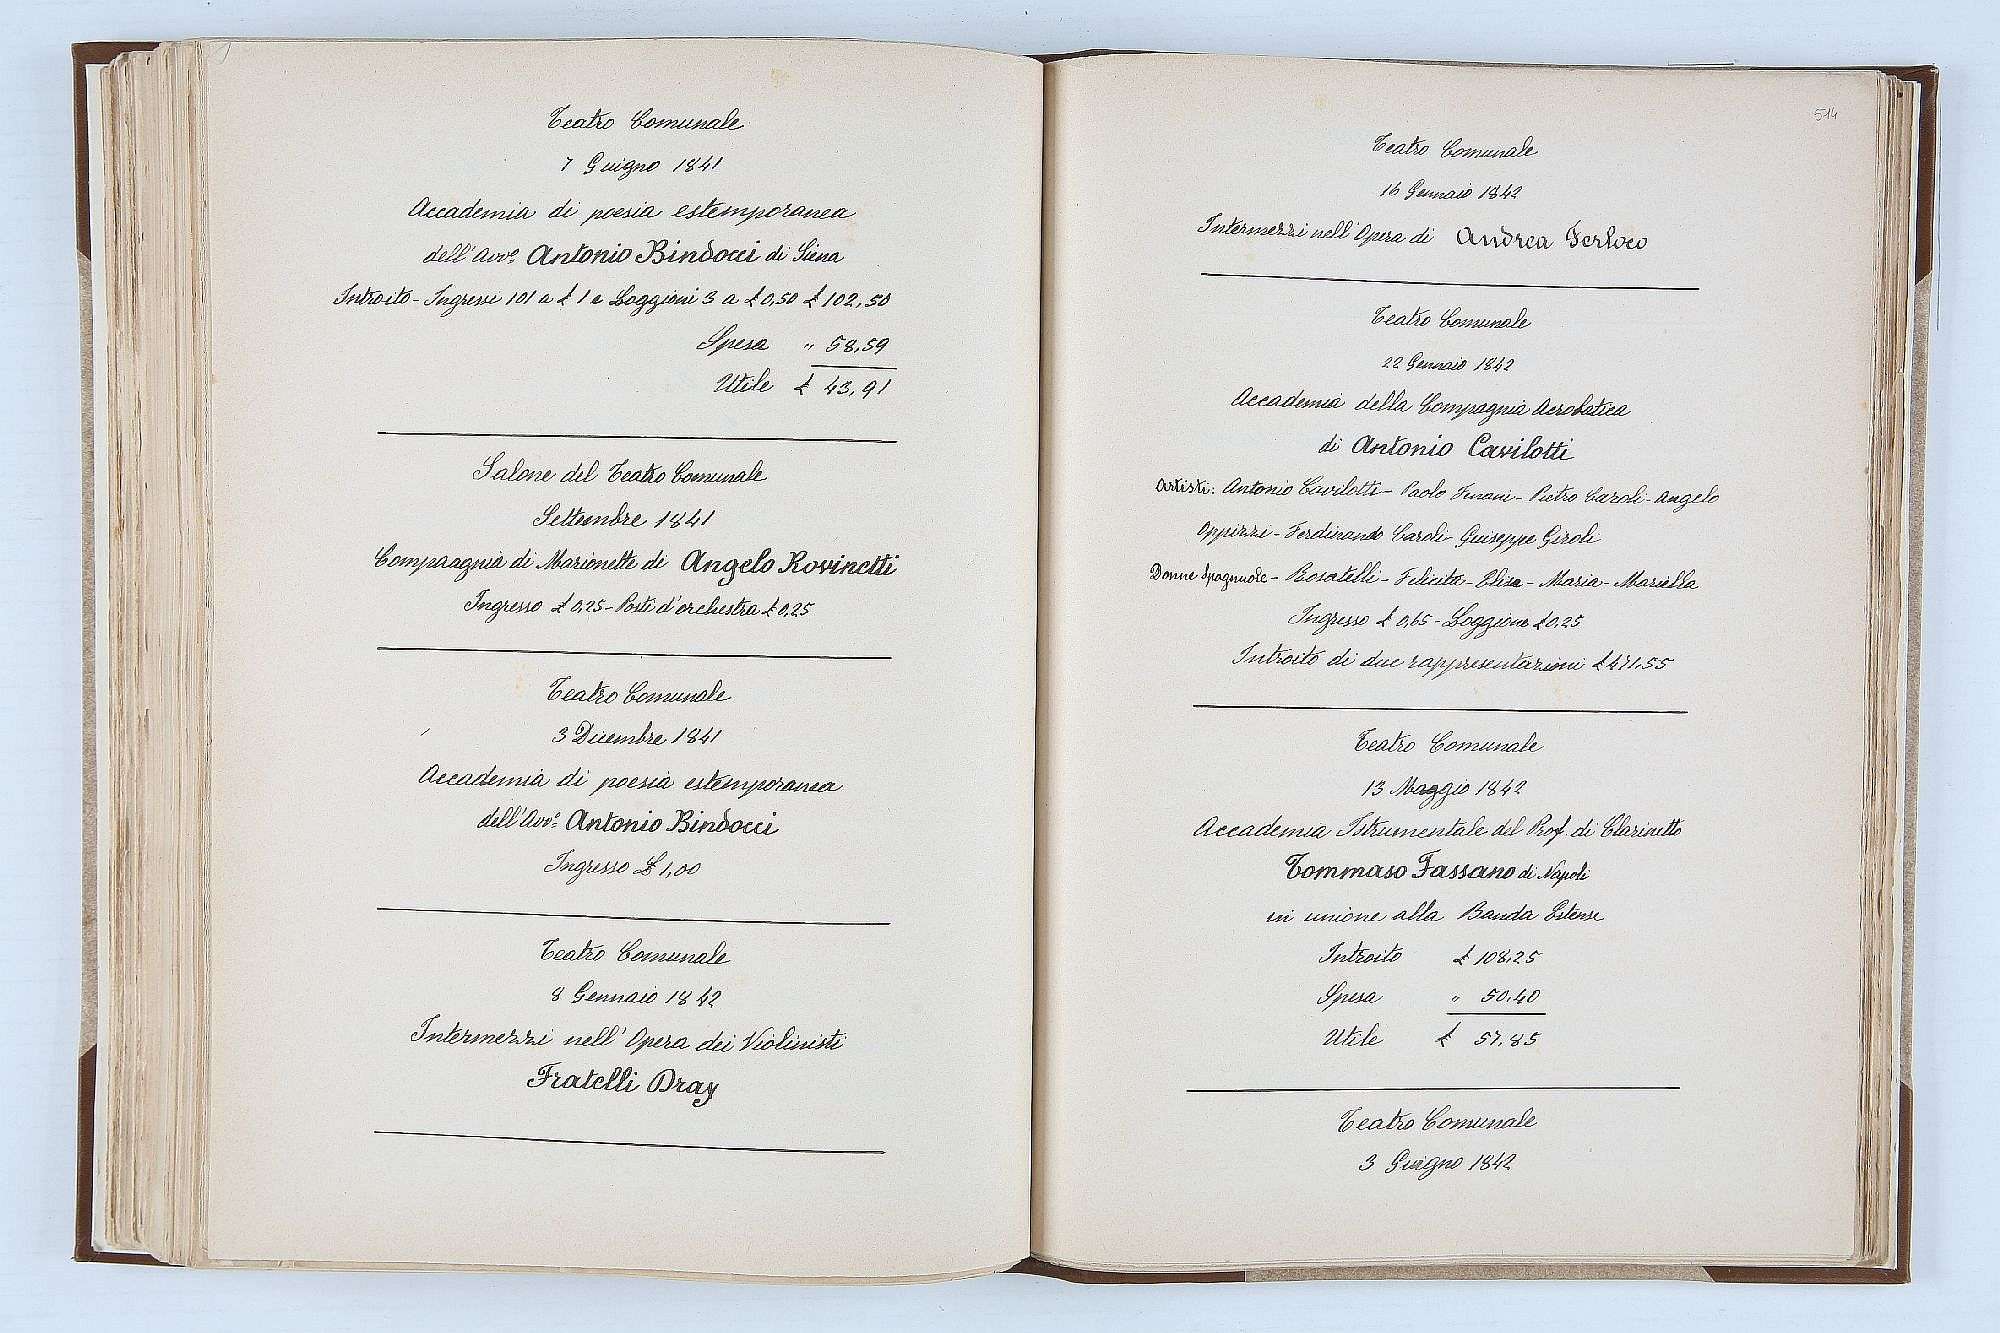 Teatro Comunale
7 Giugno 1841
Accademia di poesia estemporanea
dell'Avvo. Antonio Bindocci di Siena
Introito - Ingressi 101 a £ 1 e Loggioni 3 a £ 0,50 £ 102,50
Spesa " 58,59
Utile £ 43,91
Salone del Teatro Comunale
Settembre 1841
Compagnia di Marionette di Angelo Rovinetti
Ingresso £ 0,25 - Posti d'orchestra £ 0,25
Teatro Comunale
3 Dicembre 1841
Accademia di poesia estemporanea
dell'Avvo. Antonio Bindocci
Ingresso £ 1,00
Teatro Comunale
8 Gennaio 1842
Intermezzi nell'Opera dei Violinisti
Fratelli Dray
514
Teatro Comunale
16 Gennaio 1842
Intermezzi nell'Opera di Andrea Ferloco
Teatro Comunale
22 Gennaio 1842
Accademia della Compagnia Acrobatica
di Antonio Cavilotti
Artisti: Antonio Cavilotti - Paolo - Pietro Caroli - Angelo
Oppizzi - Ferdinando Caroli Guiseppe Giroli
Donne Spagnuole - Bosatelli - Felicita - Elisa - Maria - Mariella
Ingresso £ 0,65 - Loggione £ 0,25
Introito di due rappresentazioni £ 471,55
Teatro Comunale
13 Maggio 1842
Accademia Istrumentale del Prof. di Clarinetto
Tommaso Fassano di Napoli
in unione alla Banda Estense
Introito £ 108,25
Spesa " 50,40
Utile £ 57,85
Teatro Comunale
3 Giugno 1842